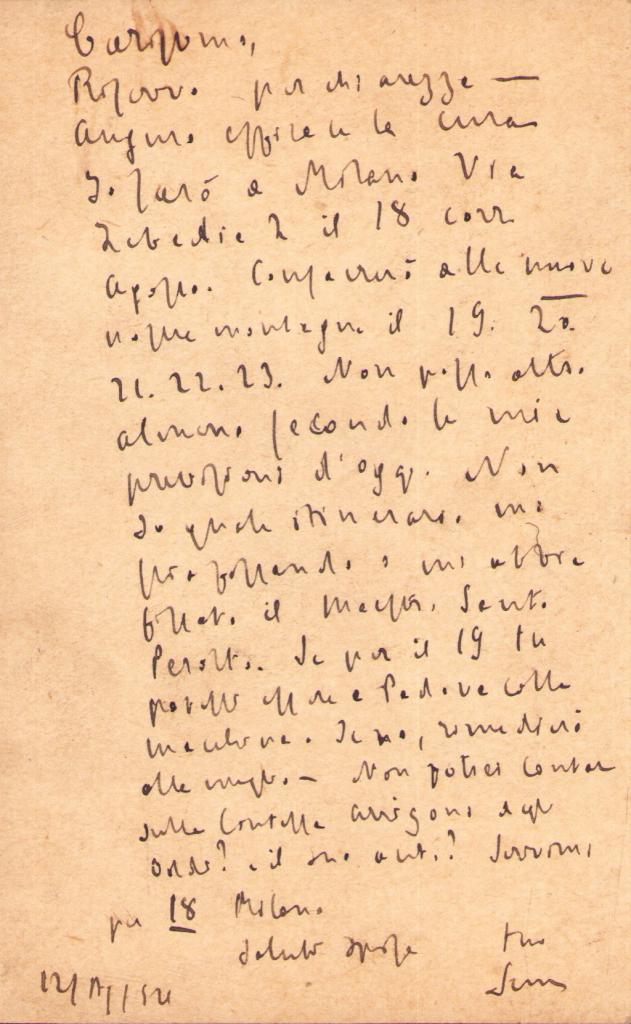 Carissimo,
Ricevo. per chiarezza —
Auguro efficace la cura
Io sarò a Milano Via
Zebedia 2 il 18 corr
Agosto. Consacrerò alle nuove
nostre montagne il 19. 20.
21. 22. 23. Non posso oltre.
almeno secondo le mie
previsioni d'oggi. Non
so quale itinerario. mi
sta fissando o mi abbia
fissato il maestro. Sant.
Perotto. Se per il 19 tu
potessi essere a Padova colla
macchina. Se no, rimedierò
alla meglio. — Non potrei contare
sulla Contessa Arrigoni degli
Oddi? e il suo auto? Scrivimi
per 18 Milano
Saluti sposa tuo
12/A/34